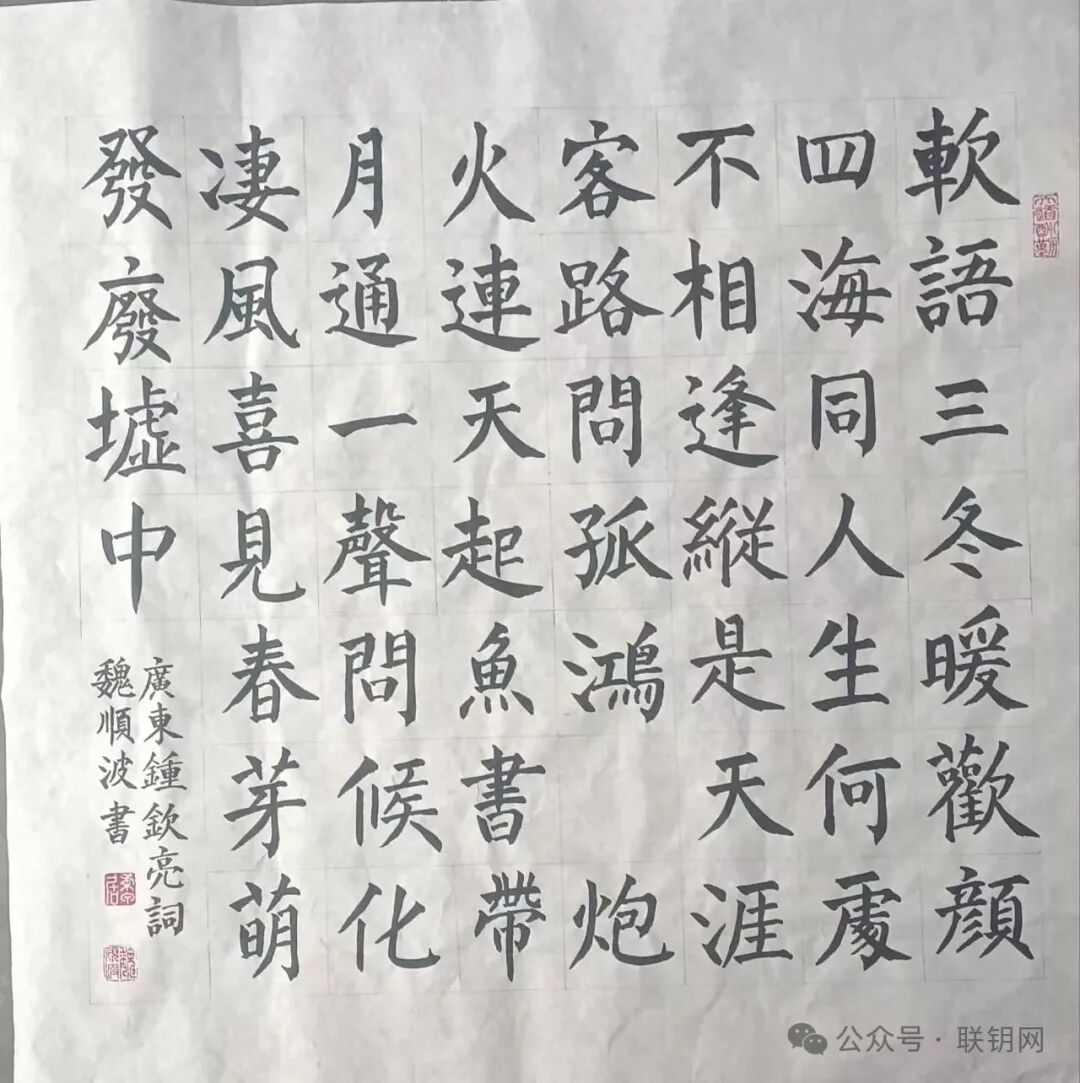 軟語三冬暖歡顔
四海同人生何處
不相逢縱是天涯
客路問孤鴻 炮
火連天起魚書帶
月通一聲問候化
凄風喜見春芽萌
發廢墟中
廣東鍾欽亮詞
魏順波書
公众号·联钥网